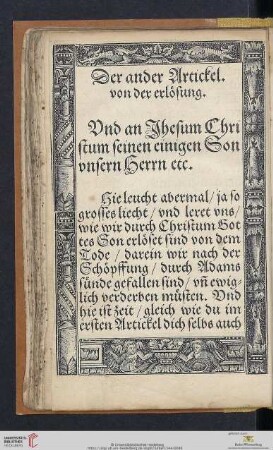 Der ander Artickel.
von der erlösung.
Vnd an Jhesum Chri
stum seinen einigen Son
vnsern Herrn etc.
Hie leucht abermal / ja so
grosses liecht / vnd leret vns /
wie wir durch Christum Got
tes Son erlöset sind von dem
Tode / darein wir nach der
Schöpffung / durch Adams
sünde gefallen sind / vñ ewig
lich verderben müsten. Vnd
hie ist zeit / gleich wie du im
ersten Artickel dich selbs auch